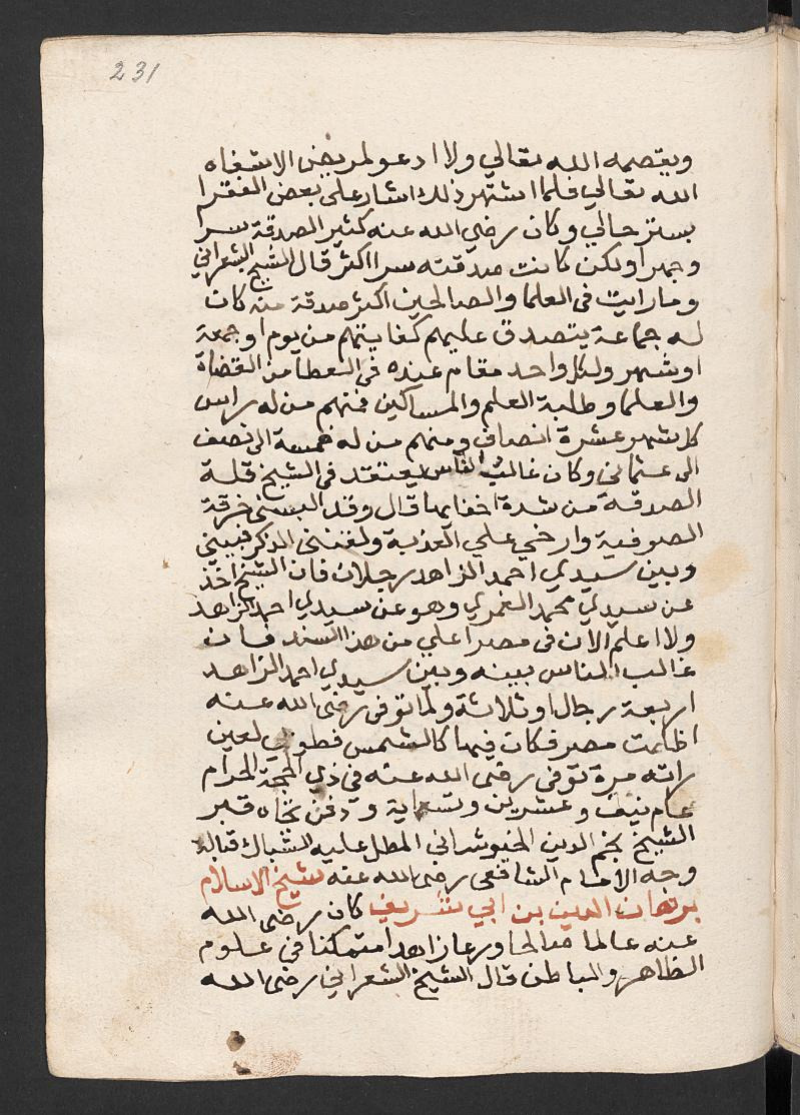 231
ويعتصمه الله تعالي ولا ادعو لمريض الا شفاه
الله تعالي فلما اشتهر ذلك اشار علي بعض الفقرا
بستر حالي وكان رضي الله عنه كثير الصدقة سرا
وجهرا ولكن كانت صدقته سرا اكثر قال الشيخ الشعراني
وما رايت في العلما والصالحين اكثر صدقة منه كان
له جماعة يتصدق عليهم كفايتهم من يوم او جمعة
او شهر ولكل واحد مقام عنده في العطا من القضاة
والعلما وطلبة العلم والمساكين فمنهم من له راس
كل شهر عشرة انصاف ومنهم من له خمسة الى نصف
الى عثماني وكان غالب الناس يعتقد في الشيخ قلة
الصدقة من شدة اخفايها قال وقد البسني خرقة
الصوفية وارخي علي العذبة ولقنني الذكر فبيني
وبين سيدي احمد الزاهد رجلان فان الشيخ اخذ
عن سيدي محمد الغمري وهو عن سيدي احمد الزاهد
ولا اعلم الان في مصر اعلي من هذا السند فان
غالب الناس بينه وبين سيدي احمد الزاهد
اربعة رجال او ثلاثة ولما توفي رضي الله عنه
اظلمت مصر فكان فيها كالشمس فطوبي لعين
راته مرة توفي رضي الله عنه في ذي الحجة الحرام
عام نيف وعشرين وتسماية ودفن تجاه قبر
الشيخ نجم الدين الخبوشاني المطل عليه الشباك قبالة
وجه الامام الشافعي رضي الله عنه شيخ الاسلام
برهان الدين بن ابي شريف كان رضي الله
عنه عالما صالحا ورعا زاهدا متمكنا في علوم
الظاهر والباطن قال الشيخ الشعراني رضي الله